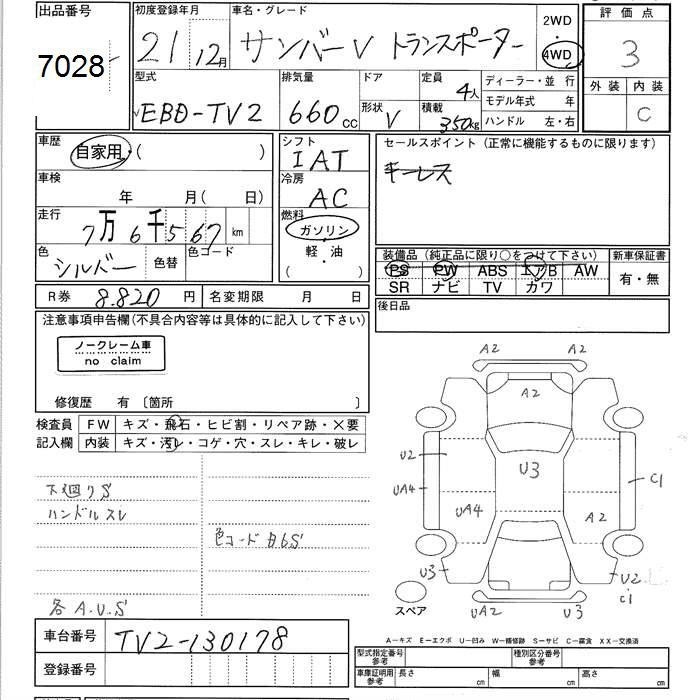 出品番号
7028
初度登録年月
21 12月
車名・グレード
サンバーV トランスポーター
2WD
・
4WD
評価点
3
外装 内装
C
型式
EBD-TV2
排気量
660cc
ドア
形状 V
定員
4人
積載
350kg
ディーラー・並 行
モデル年式 年
ハンドル 左・右
車歴
自家用 ( )
シフト
IAT
冷房
AC
燃料
ガソリン
軽・油
( )
車検
年 月( 日)
走行
7万6千567km
色
シルバー
色替
色コード
R券 8.820円
名変期限 月 日
セールスポイント(正常に機能するものに限ります)
キーレス
装備品(純正品に限り〇をつけて下さい)
PS PW ABS エアB AW
SR ナビ TV カワ
新車保証書
有・無
後日品
注意事項申告欄(不具合内容等は具体的に記入して下さい)
ノークレーム車
no claim
修復歴 有 〔箇所 〕
検査員
記入欄
FW キズ・飛石・ヒビ割・リペア跡・×要
内装 キズ・汚レ・コゲ・穴・スレ・キレ・破レ
下廻りS
ハンドルスレ
色コード B6S
各A.U.S
A2 A2
A2
U2
U3
UA4
UA4
A2
C1
U3
U2
C1
UA2
U3
スペア
車台番号 TV2-130178
登録番号
A-キズ E-エクボ U-凹み W-補修跡 S-サビ C-腐食 XX-交換済
型式指定番号
参考
種別区分番号
参考
車庫証明用
参考
長さ cm
幅 cm
高さ cm